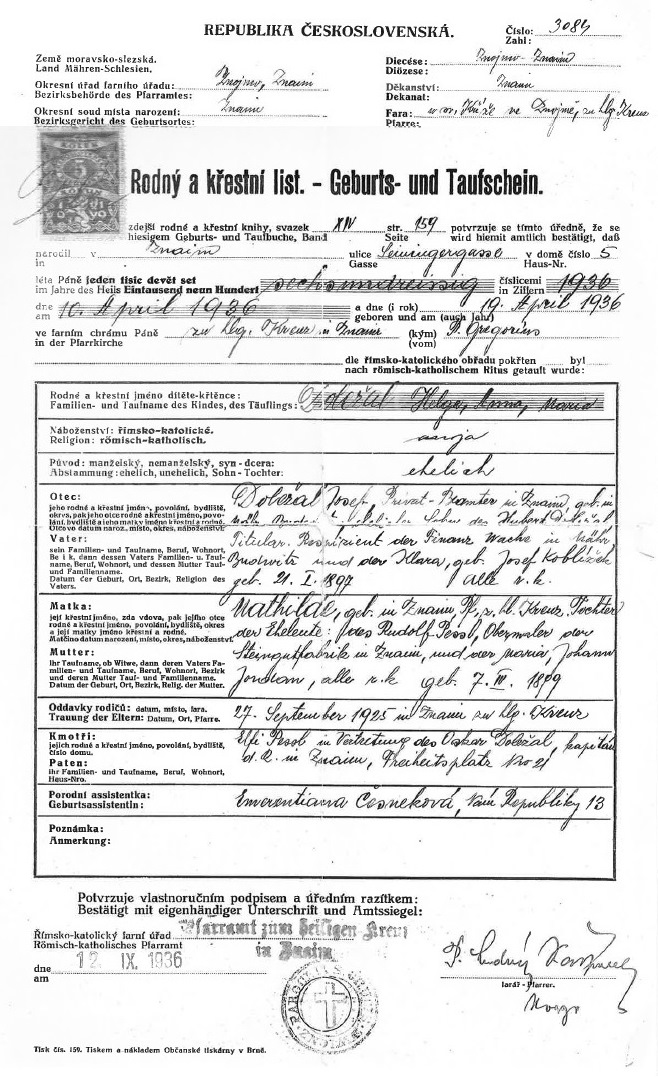 REPUBLIKA ČESKOSLOVENSKÁ.
Číslo: 3084
Zahl:
Země moravsko-slezská.
Land Mähren-Schlesien,
Okresní úřad farního úřadu: Znojmo, Znaim
Bezirksbehörde des Pfarramtes:
Okresní soud místa narození: Znaim
Bezirksgericht des Geburtsortes:
Diecése: Znojmo-Znaim
Diözese:
Děkanství: Znaim
Dekanat:
Fara: u sv. Kříže ve Znojmě, zu hlg Kreuz
Pfarre:
5
Rodný a křestní list. - Geburts- und Taufschein.
zdejší rodné a křestní knihy, svazek XIV str. 159 potvrzuje se tímto úředně, že se
hiesigem Geburts- und Taufbuche, Band Seite wird hiemit amtlich bestätigt, daß
narodil v Znaim ulice Leiningergasse v domě číslo 5
in Gasse Haus-Nr.
léta Páně jeden tisíc devět set sechsunddreissig číslicemi 1936
im Jahre des Heils Eintausend neun Hundert in Ziffern
dne 10. April 1936 a dne (i rok) 19. April 1936
am geboren und am (auch Jahr)
ve farním chrámu Páně zu hlg. Kreuz in Znaim (kým) P. Gregorius
in der Pfarrkirche (vom)
dle římsko-katolického obřadu pokřtěn byl
nach römisch-katholischem Ritus getauft wurde:
Rodné a křestní jméno dítěte-křtěnce: Doležal Helga, Anna, Maria
Familien- und Taufname des Kindes, des Täuflings:
Náboženství: římsko-katolické.
Religion: römisch-katholisch.
Původ: manželský, nemanželský, syn - dcera: ehelich
Abstammung: ehelich, unehelich, Sohn - Tochter:
Otec: Doležal Josef Privat-Beamter in Znaim, geb. in
jeho rodné a křestní jméno, povolání, bydliště,
okres, pak jeho otce rodné a křestní jméno, povolání,
bydliště a jeho matky jméno křestní a rodné.
Otcovo datum naroz., místo, okres, náboženství:
Vater: Titular. Respizient der Finanz Wache in Mähr.
sein Familien- und Taufname, Beruf, Wohnort,
Bezirk, dann dessen Vaters Familien- u. Taufname,
Beruf, Wohnort, und dessen Mutter Tauf-
und Familienname.
Budwitz und der Klara, geb. Josef Koblížek
Datum der Geburt, Ort, Bezirk, Religion des
Vaters.
geb. 21. I. 1897 Alle r. k.
Matka: Mathilde, geb. in Znaim Pf. z. hl. Kreuz Tochter
její křestní jméno, zda vdova, pak jejího otce
rodné a křestní jméno, povolání, bydliště, okres
a její matky jméno křestní a rodné.
Matčino datum narození, místo, okres, náboženství:
der Eheleute: des Rudolf Pessl, Obermaler der
Mutter: Steingutfabrik in Znaim, und der Maria, Johann
Ihr Taufname, ob Witwe, dann deren Vaters
Familien- und Taufname, Beruf, Wohnort, Bezirk
und deren Mutter Tauf- und Familienname.
Datum der Geburt, Ort, Bezirk, Relig. der Mutter.
Jordan, alle r. k. geb. 7. III. 1899
Oddavky rodičů: datum, místo, fara. 27. September 1925 in Znaim zu hlg. Kreuz
Trauung der Eltern: Datum, Ort, Pfarre.
Kmotři: Elfi Pessl in Vertretung des Oskar Doležal, kapitán
jejich rodné a křestní jméno, povolání, bydliště,
číslo domu.
Paten: d. R. in Znaim, Freiheitsplatz Nro 21
ihr Familien- und Taufname, Beruf, Wohnort,
Haus-Nro.
Porodní assistentka: Emerentiana Česneková, Nám Republiky 13
Geburtsassistentin:
Poznámka:
Anmerkung:
Potvrzuje vlastnoručním podpisem a úředním razítkem:
Bestätigt mit eigenhändiger Unterschrift und Amtssiegel:
Římsko-katolický farní úřad Pfarramt zum heiligen Kreuz
Römisch-katholisches Pfarramt in Znaim
dne 12. IX. 1936
am
farář - Pfarrer.
Tisk čís. 159. Tiskem a nákladem Občanské tiskárny v Brně.